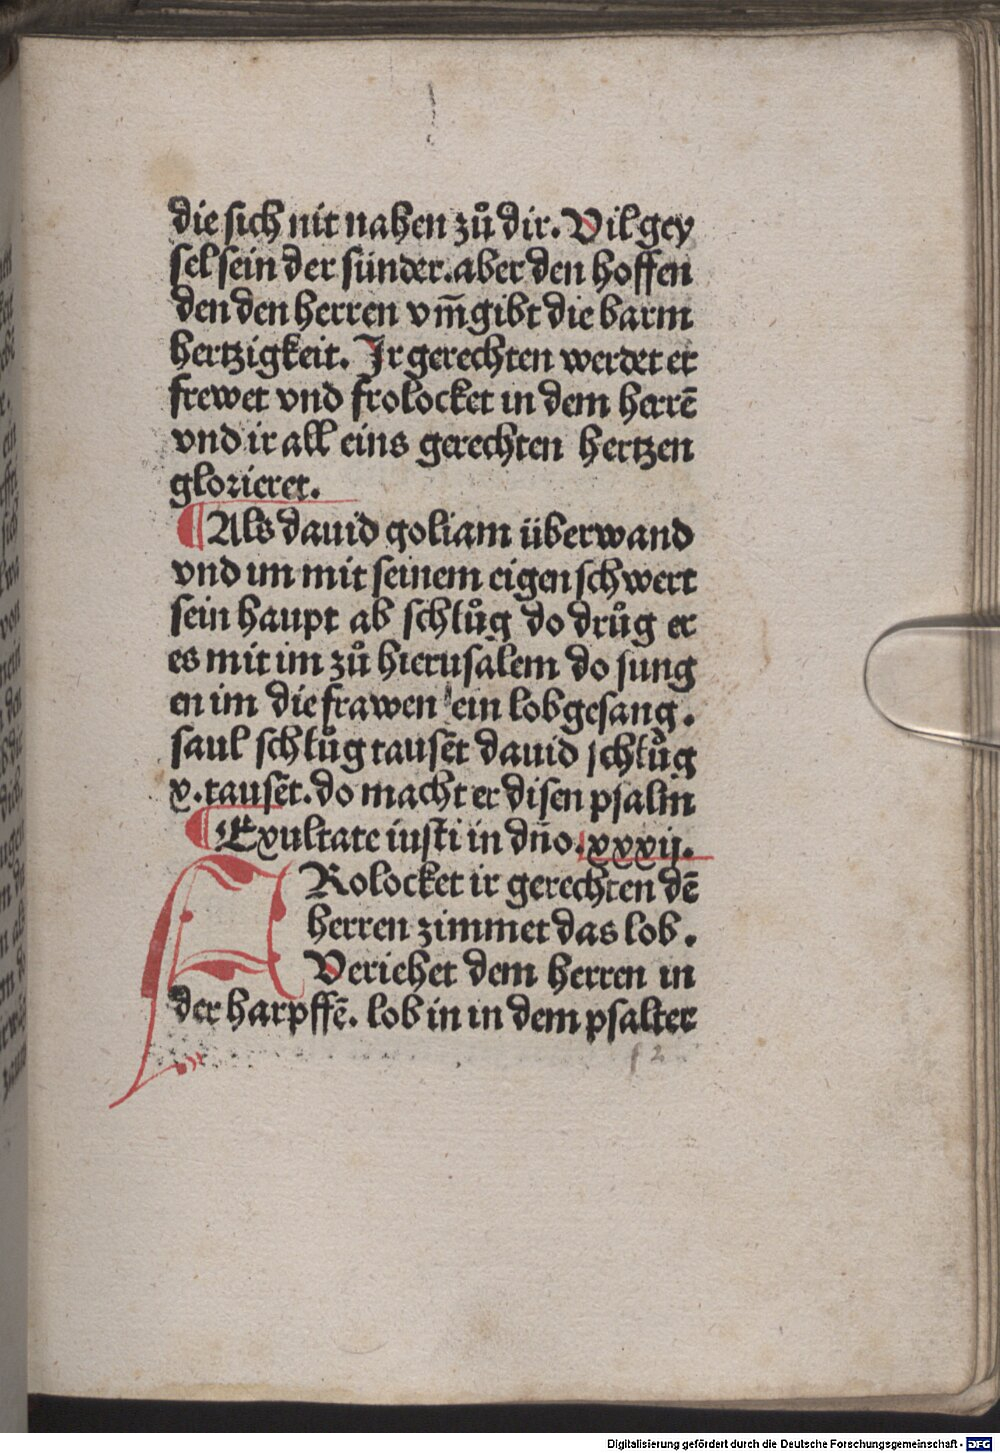 die sich nit nahen zů dir. Vil gey
sel sein der sünder. aber den hoffen
den den herren vm̄gibt die barm
hertzigkeit. Ir gerechten werdet er
frewet vnd frolocket in dem herrē
vnd ir all eins gerechten hertzen
glorieret.
¶ Als dauid goliam überwand
vnd im mit seinem eigen schwert
sein haupt ab schlůg do drůg er
es mit im zů hierusalem do sung
en im die frawen ein lobgesang.
saul schlůg tausēt dauid schlůg
x. tausēt. do macht er disen psalm
¶ Exultate iusti in dn̄o. xxxij.
FRolocket ir gerechten dē
herren zimmet das lob.
Veriehet dem herren in
der harpffē. lob in in dem psalter
f 2
Digitalisierung gefördert durch die Deutsche Forschungsgemeinschaft - DFG